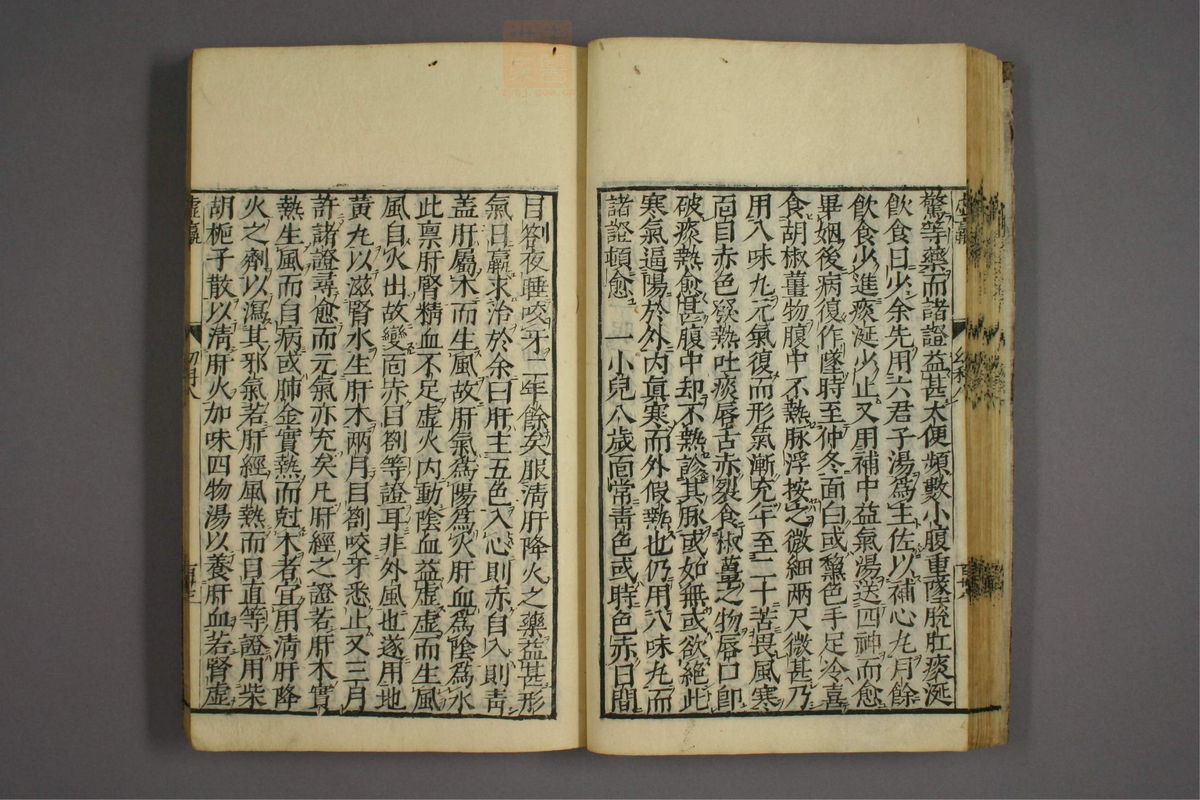 驚等藥而諸證益甚大便頻數小腹重墜脫肛痰涎
飲食日少余先用六君子湯爲主佐以補心丸月餘
飲食少進痰涎少止又用補中益氣湯送四神而愈
畢姻後病復作墜時至仲冬面白或黧色手足冷喜
食胡椒薑物腹中不熱脉浮按之微細兩尺微甚乃
用八味丸元氣復而形氣漸充年至二十苦畏風寒
面目赤色發熱吐痰唇舌赤裂食椒薑之物唇口卽
破痰熱愈甚腹中却不熱診其脉或如無或欲絕此
寒氣逼陽於外内眞寒而外假熱也仍用八味丸而
諸證頓愈 一小兒八歲面常靑色或時色赤日間
目劄夜睡咬牙二年餘矣服淸肝降火之藥益甚形
氣日羸求治於余曰肝主五色入心則赤自入則靑
蓋肝屬木而生風故肝氣爲陽爲火肝血爲陰爲水
此稟肝腎精血不足虛火内動陰血益虛虛而生風
風自火出故變面赤目劄等證耳非外風也遂用地
黃丸以滋腎水生肝木兩月目劄咬牙悉止又三月
許諸證尋愈而元氣亦充矣凡肝經之證若肝木實
熱生風而自病或肺金實熱而尅木者宜用淸肝降
火之劑以瀉其邪氣若肝經風熱而目直等證用柴
胡梔子散以淸肝火加味四物湯以養肝血若腎虛
虛羸